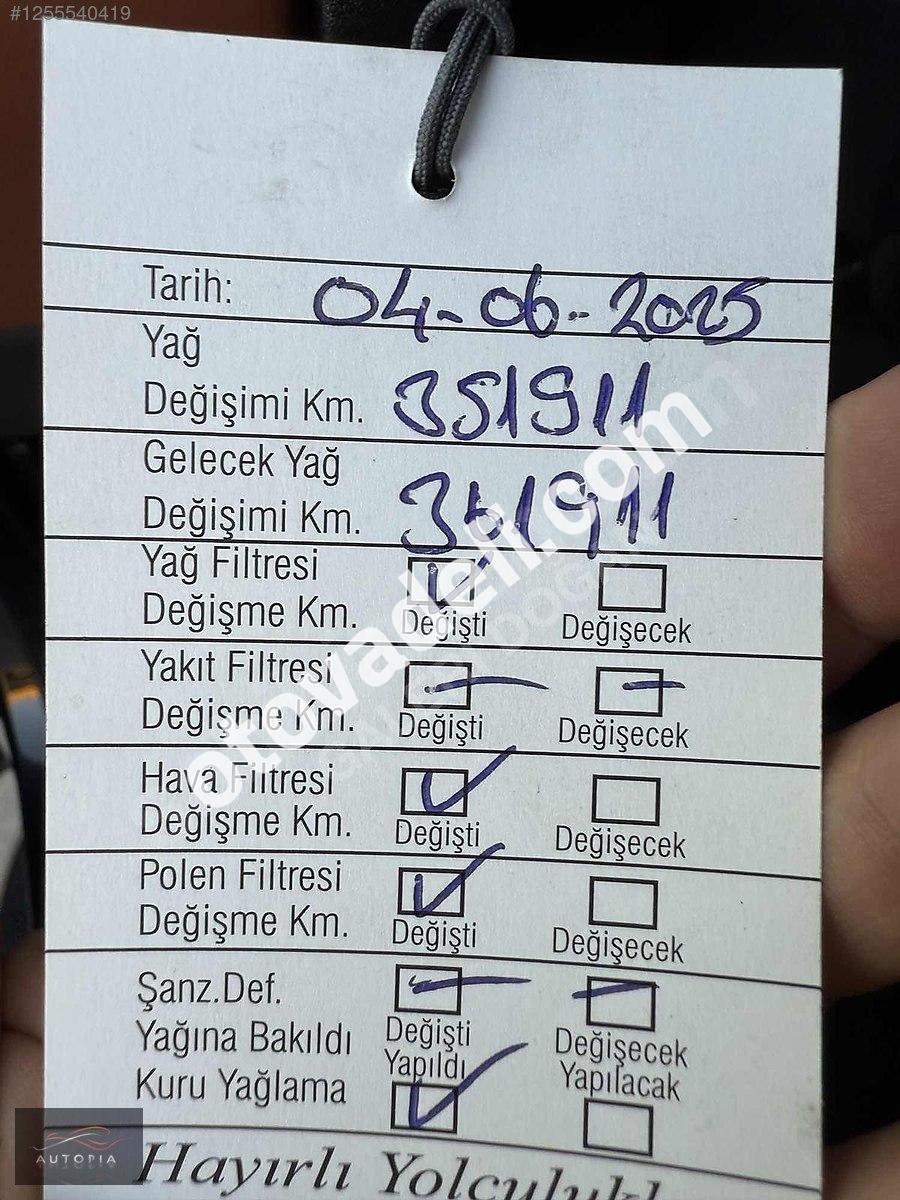 #1255540419
Tarih: 04-06-2025
Yağ
Değişimi Km. 351911
Gelecek Yağ
Değişimi Km. 361911
Yağ Filtresi
Değişme Km. Değişti Değişecek
Yakıt Filtresi
Değişme Km. Değişti Değişecek
Hava Filtresi
Değişme Km. Değişti Değişecek
Polen Filtresi
Değişme Km. Değişti Değişecek
Şanz.Def.
Yağına Bakıldı Değişti Değişecek
Kuru Yağlama Yapıldı Yapılacak
Hayırlı
AUTOPIA